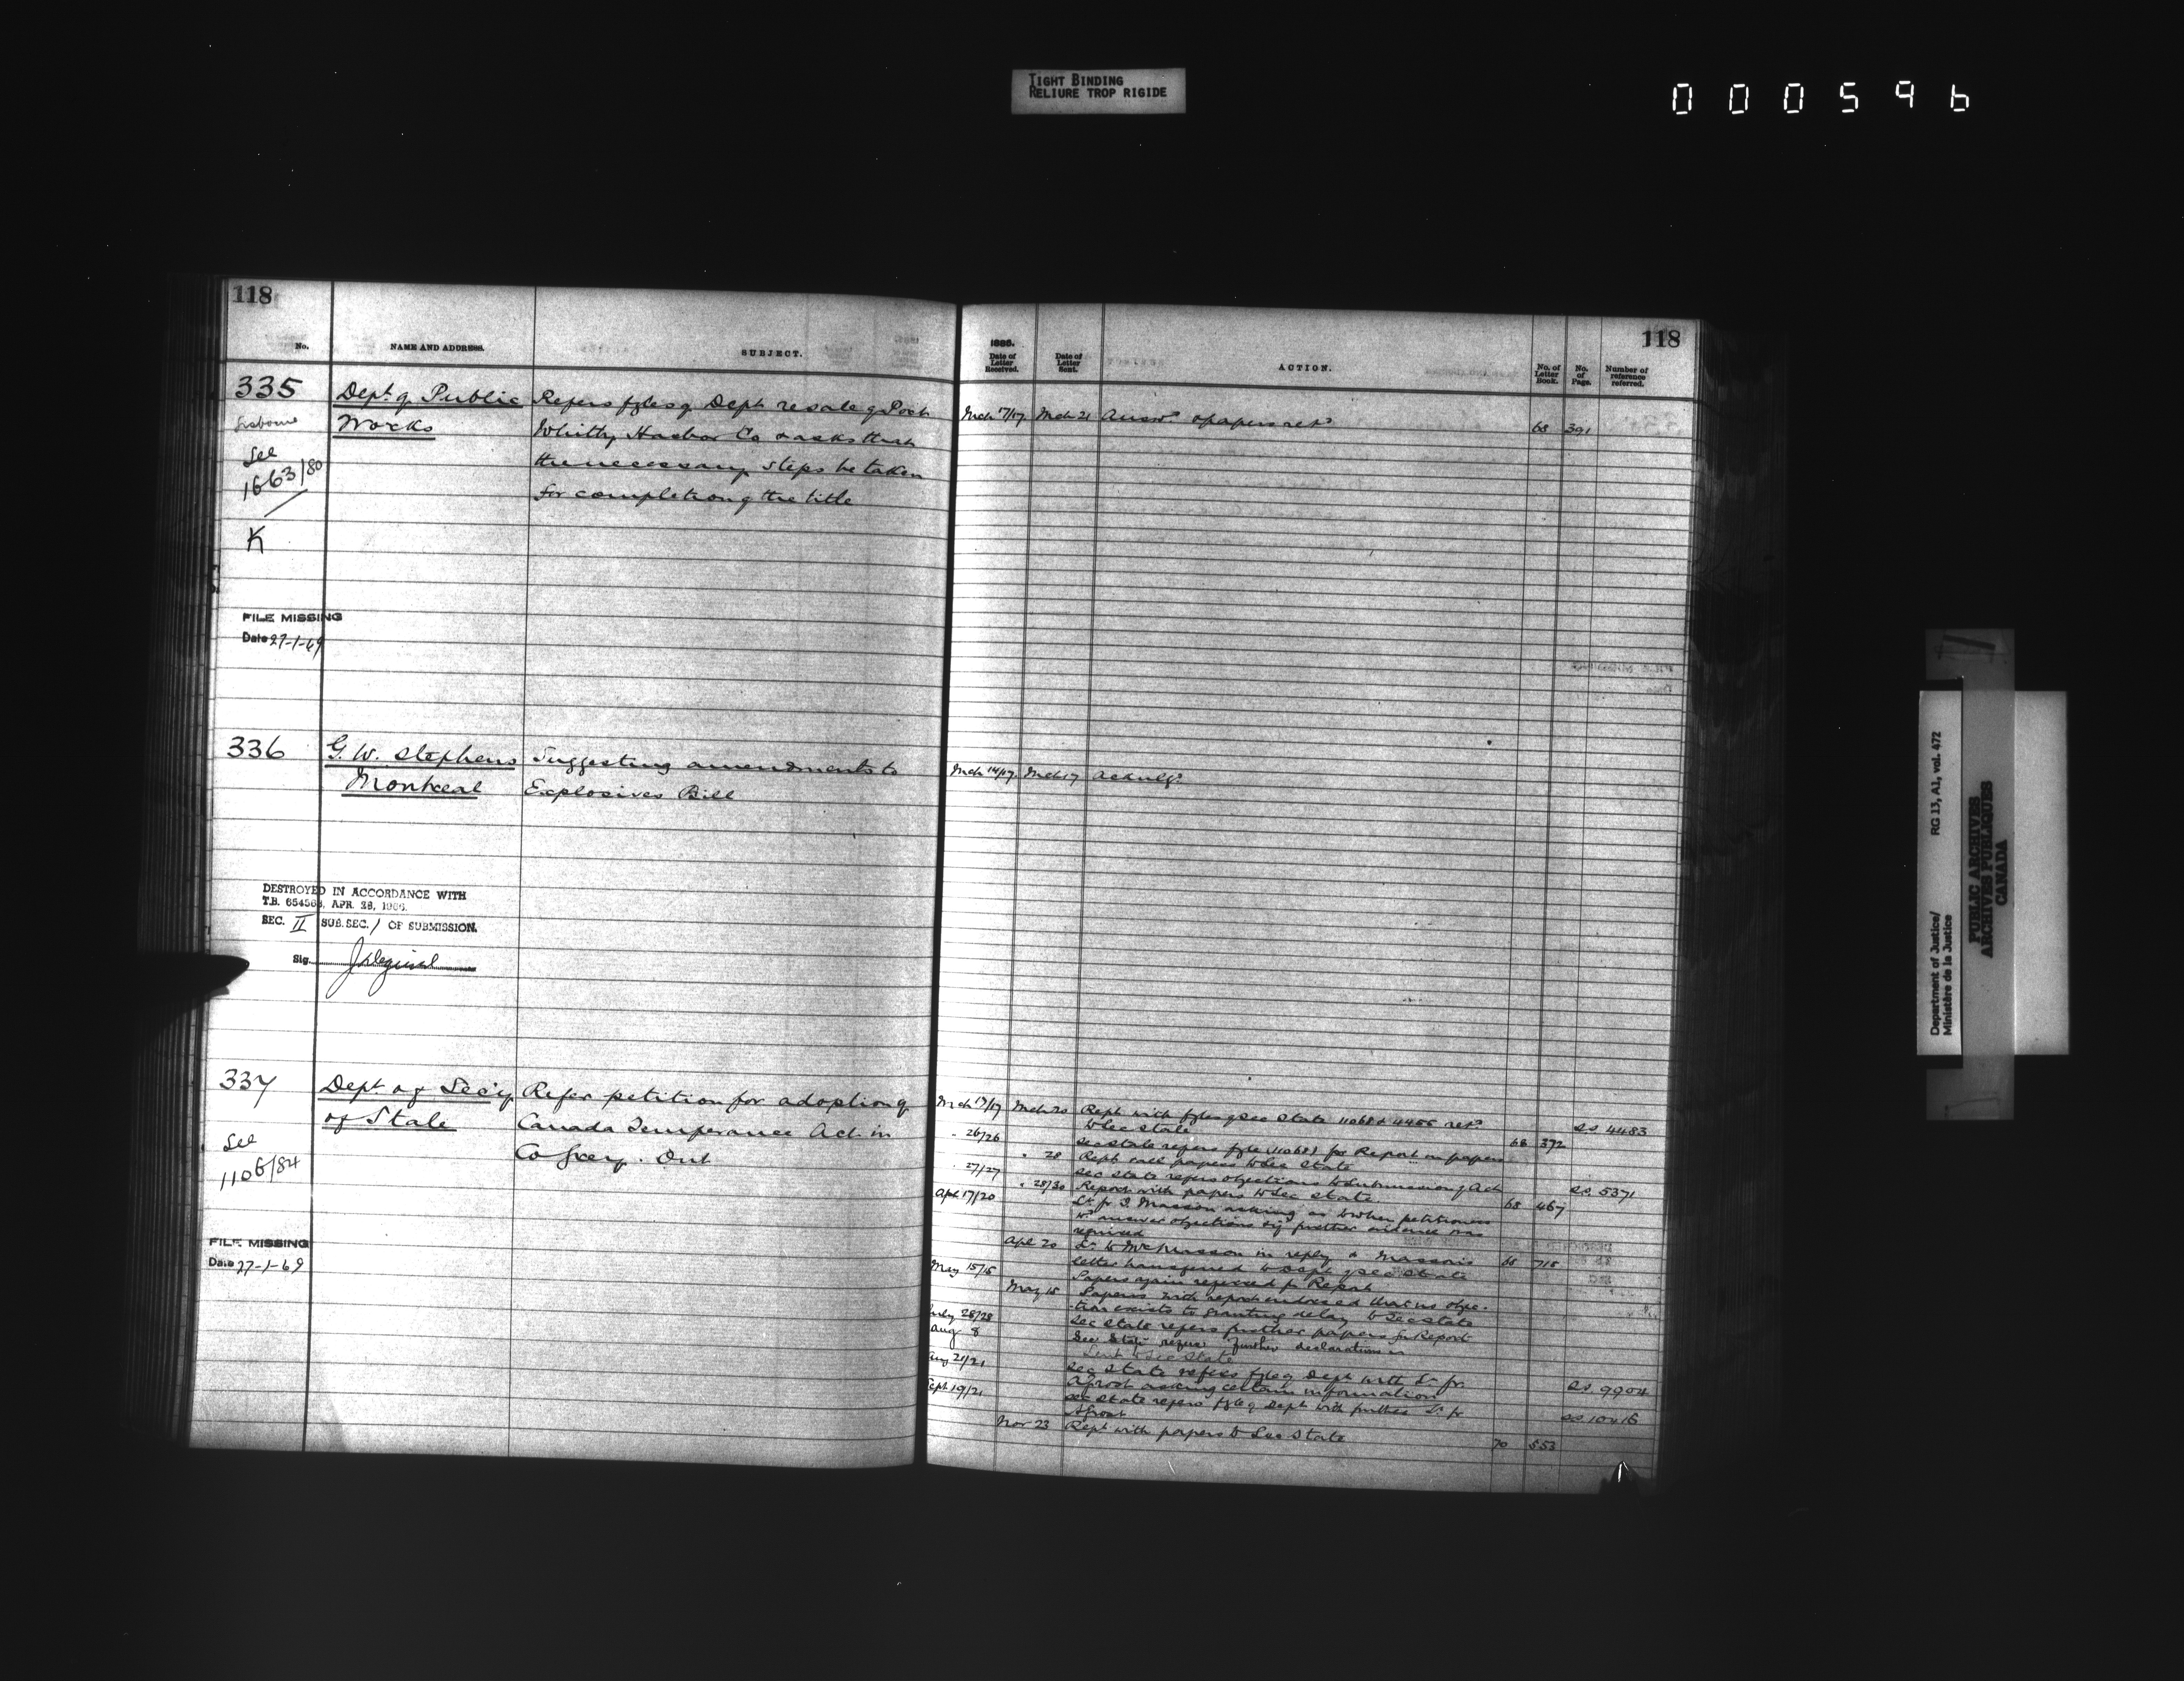 TIGHT BINDING
RELIURE TROP RIGIDE
000596
118
No.
NAME AND ADDRESS.
SUBJECT.
335
Dept of Public
Works
See
1663/80
K
Refers fyles of Dept re sale of Port
Whitby Harbor Co & asks that
the necessary steps be taken
for completion of the title
FILE MISSING
Date 27-1-69
336
G. W. Stephens
Montreal
Suggesting amendments to
Explosives Bill
DESTROYED IN ACCORDANCE WITH
T.B. 654563, APR. 28, 1966.
SEC. II SUB. SEC. 1 OF SUBMISSION.
Sig.
337
Dept of Sec'y
of State
See
1106/84
Refer petition for adoption of
Canada Temperance Act in
Co Grey. Ont
FILE MISSING
Date 27-1-69
118
Date of Letter Received.
Date of Letter Sent.
ACTION.
No. of Letter Book.
No. of Page.
Number of reference referred.
Mch 17/17 Mch 21 Answd & papers retd 68 391
Mch 14/17 Mch 17 Acknlgd
Mch 17/19 Mch 20 Rept with fyles of Sec State 11068 & 4466 retd SS 4483
to Sec State 68 372
" 26/26 Sec State refers fyle (11068) for Report on papers
" 28 Rept with papers to Sec State
" 27/27 Sec State refers objections to submission of Act SS 5371
" 28/30 Report with papers to Sec State 68 467
Apl 17/20 Lr fr J. Masson asking as to when petitioners
wd answer objections & if further evidence was
required
Apl 20 Lr to Mr Masson in reply & Masson's 68 715
letter transferred to Dept of Sec State
May 15/15 Papers again referred for Report
May 15 Papers with report endorsed that no objec-
tion exists to granting delay to Sec State
July 28/28 Sec State refers further papers for Report
Aug 8 Sec State refers further declarations
Sent to Sec State
Aug 21/21 Sec State refers fyle of Dept with Lr fr
A Frost asking certain information SS 9904
Sept 19/21 Sec State refers fyle of Dept with further Lr fr
A Frost SS 10416
Nov 23 Rept with papers to Sec State 70 553
Department of Justice/
Ministère de la Justice
RG 13, A1, vol. 472
PUBLIC ARCHIVES
ARCHIVES PUBLIQUES
CANADA